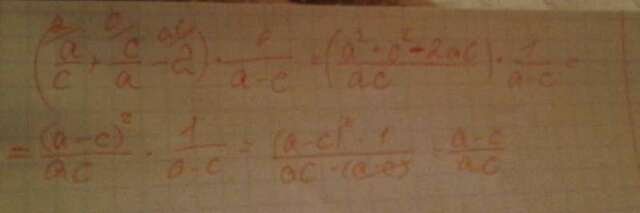 (a/c + c/a - 2) · 1/(a-c) = (a² + c² - 2ac)/ac · 1/(a-c) =
= (a-c)²/ac · 1/(a-c) = (a-c)² · 1/ac · (a-c) = a-c/ac